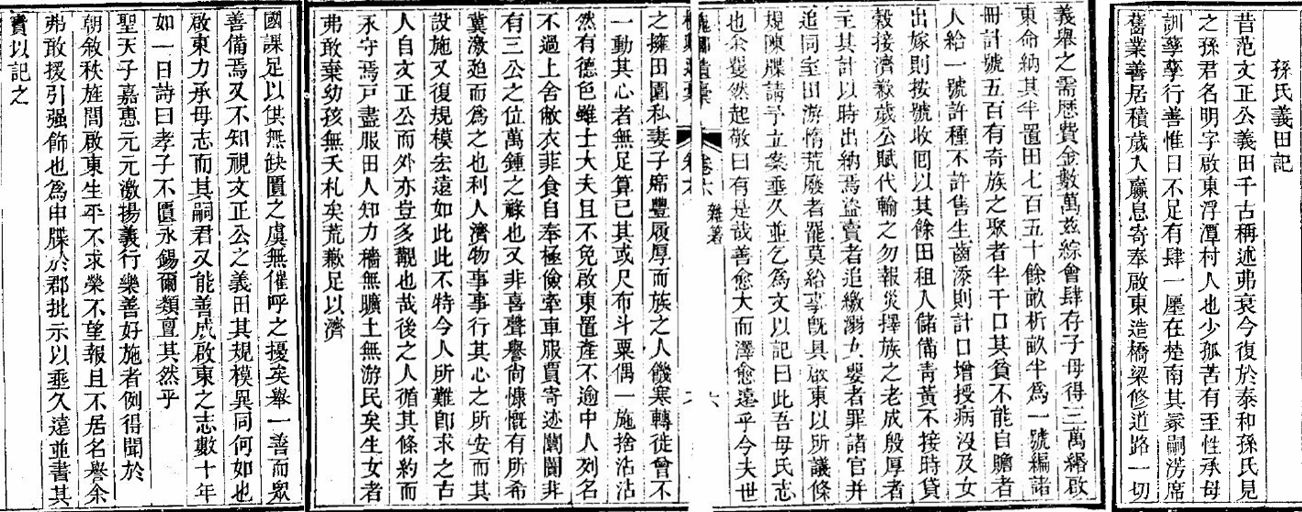 孫氏義田記
昔范文正公義田千古稱述弗衰今復於泰和孫氏見
之孫君名明字啟東浮潭村人也少孤苦有至性承母
訓孳孳行善惟日不足有肆一廛在楚南其冢嗣澇席
舊業善居積歲入贏息寄奉啟東造橋梁修道路一切
義舉之需歷費金數萬茲綜會肆存子母得三萬緡啟
東命納其半置田七百五十餘畝析畝半為一號編諸
冊計號五百有奇族之聚者半千口其貧不能自贍者
人給一號許種不許售生齒添則計口增授病沒及女
出嫁則按號收回以其餘田租入儲備青黃不接時貸
穀接濟歉歲公賦代輸之勿報災擇族之老成殷厚者
主其計以時出納焉盜賣者追繳溺女嬰者罪諸官并
追同室田游惰荒廢者罷莫給事既具啟東以所議條
規陳牒請予立案垂久並乞為文以記曰此吾母氏志
也余蹙然起敬曰有是哉善愈大而澤愈遠乎今夫世
卷六 雜著 六
之擁田園私妻子席豐履厚而族之人饑寒轉徙曾不
一動其心者無足算已其或尺布斗粟偶一施捨沾沾
然有德色雖士大夫且不免啟東置產不逾中人列名
不過上舍敝衣菲食自奉極儉牽車服賈寄迹闤闠非
有三公之位萬鍾之祿也又非喜聲譽尚慷慨有所希
冀激廹而為之也利人濟物事事行其心之所安而其
設施又復規模宏遠如此此不特今人所難卽求之古
人自文正公而外亦豈多覯也哉後之人循其條約而
永守焉戸盡服田人知力穡無曠土無游民矣生女者
弗敢棄幼孩無夭札矣荒歉足以濟
國課足以供無缺匱之虞無催呼之擾矣舉一善而眾
善備焉又不知視文正公之義田其規模異同何如也
啟東力承母志而其嗣君又能善成啟東之志數十年
如一日詩曰孝子不匱永錫爾類亶其然乎
聖天子嘉惠元元激揚義行樂善好施者例得聞於
朝敘秩旌閭啟東生平不求榮不望報且不居名譽余
弗敢援引强飾也為申牒於郡批示以垂久遠並書其
實以記之